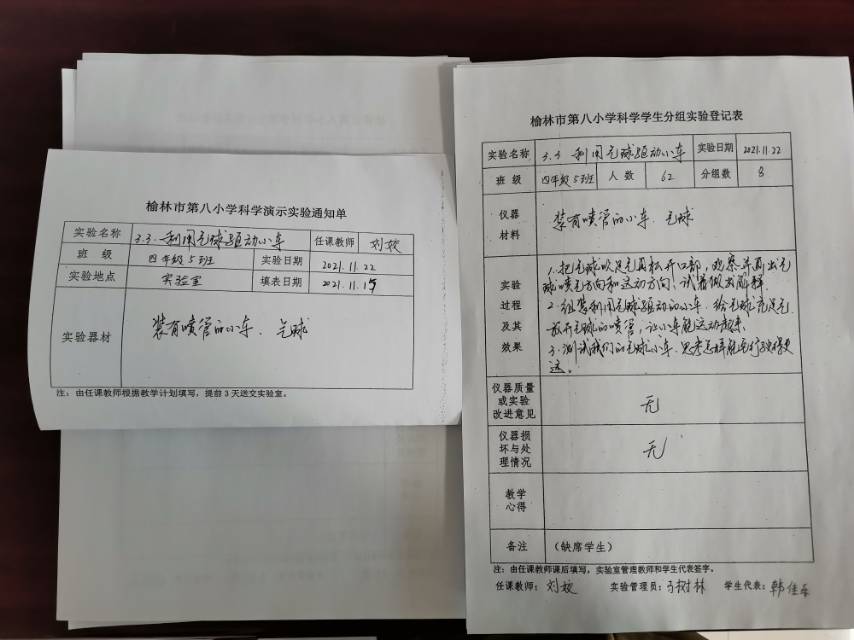 榆林市第八小学科学演示实验通知单
实验名称 3.3 利用气球驱动小车 任课教师 刘姣
班 级 四年级5班 实验日期 2021.11.22
实验地点 实验室 填表日期 2021.11.15
实验器材 装有喷管的小车、气球
注：由任课教师根据教学计划填写，提前3天送交实验室。
榆林市第八小学科学学生分组实验登记表
实验名称 3.3 利用气球驱动小车 实验日期 2021.11.22
班 级 四年级5班 人 数 62 分组数 8
仪器
材料
装有喷管的小车、气球
实验
过程
及其
效果
1. 把气球吹足气再松开口部，观察并画出气
球喷气方向和运动方向，试着做出解释。
2. 组装利用气球驱动的小车，给气球充足气
放开气球的喷管，让小车能运动起来。
3. 测试我们的气球小车，思考怎样能行驶得更
远。
仪器质量
或实验
改进意见
无
仪器损
坏与处
理情况
无
教学
心得
备注 （缺席学生）
注：由任课教师课后填写，实验室管理教师和学生代表签字。
任课教师：刘姣 实验管理员：树林 学生代表：韩佳